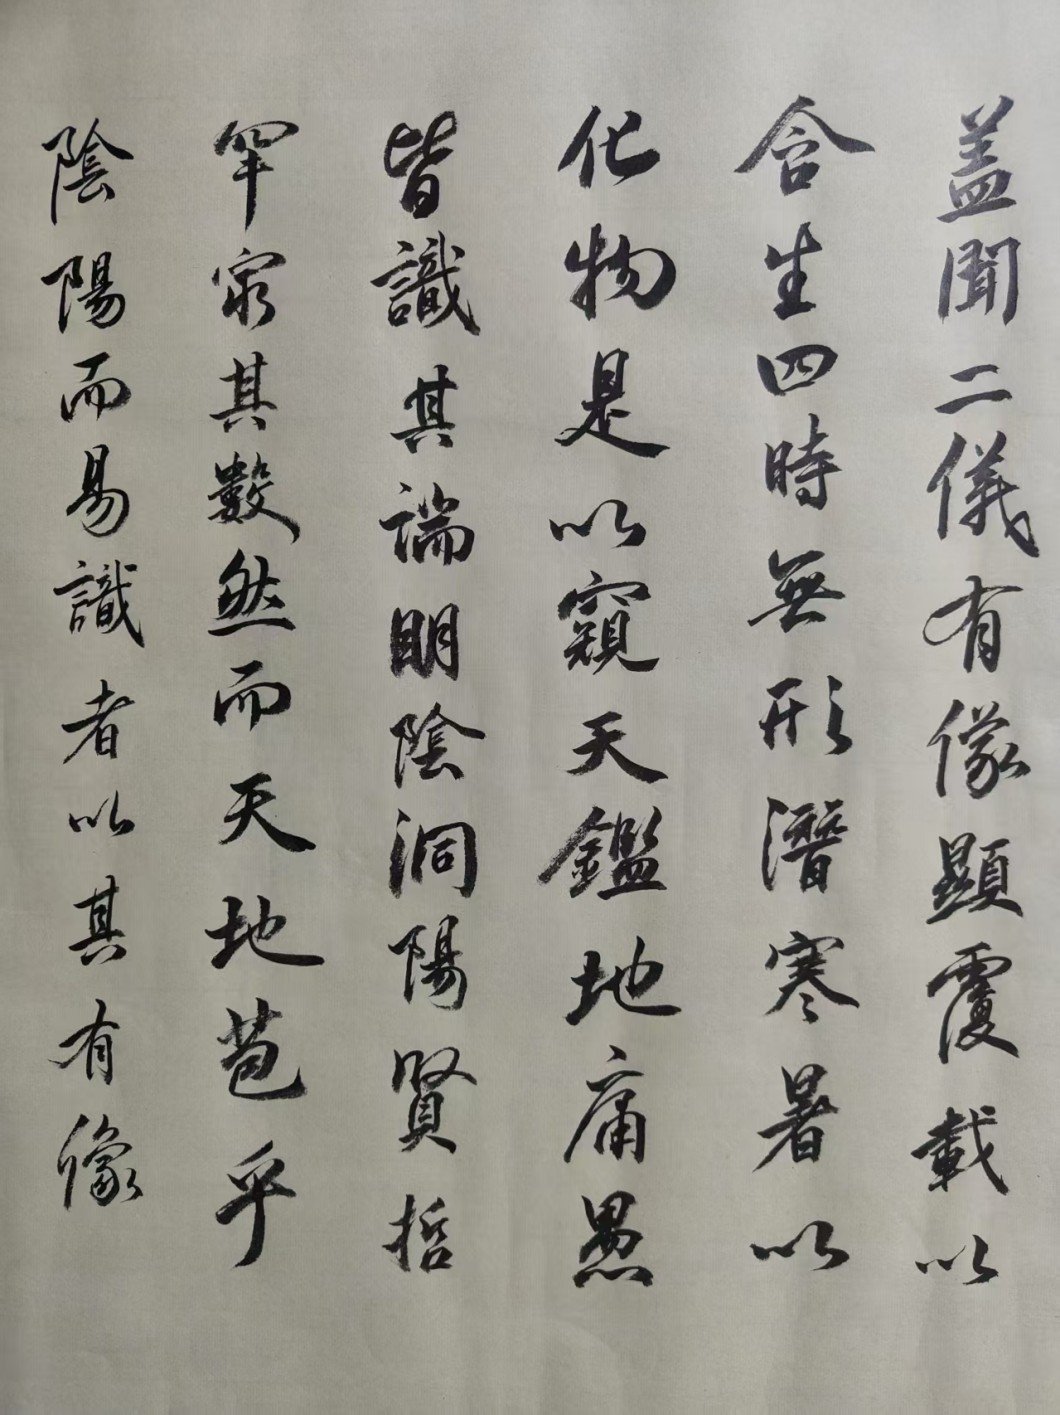 蓋聞二儀有像顯覆載以
含生四時無形潛寒暑以
化物是以窺天鑑地庸愚
皆識其端明陰洞陽賢哲
罕窮其數然而天地苞乎
陰陽而易識者以其有像